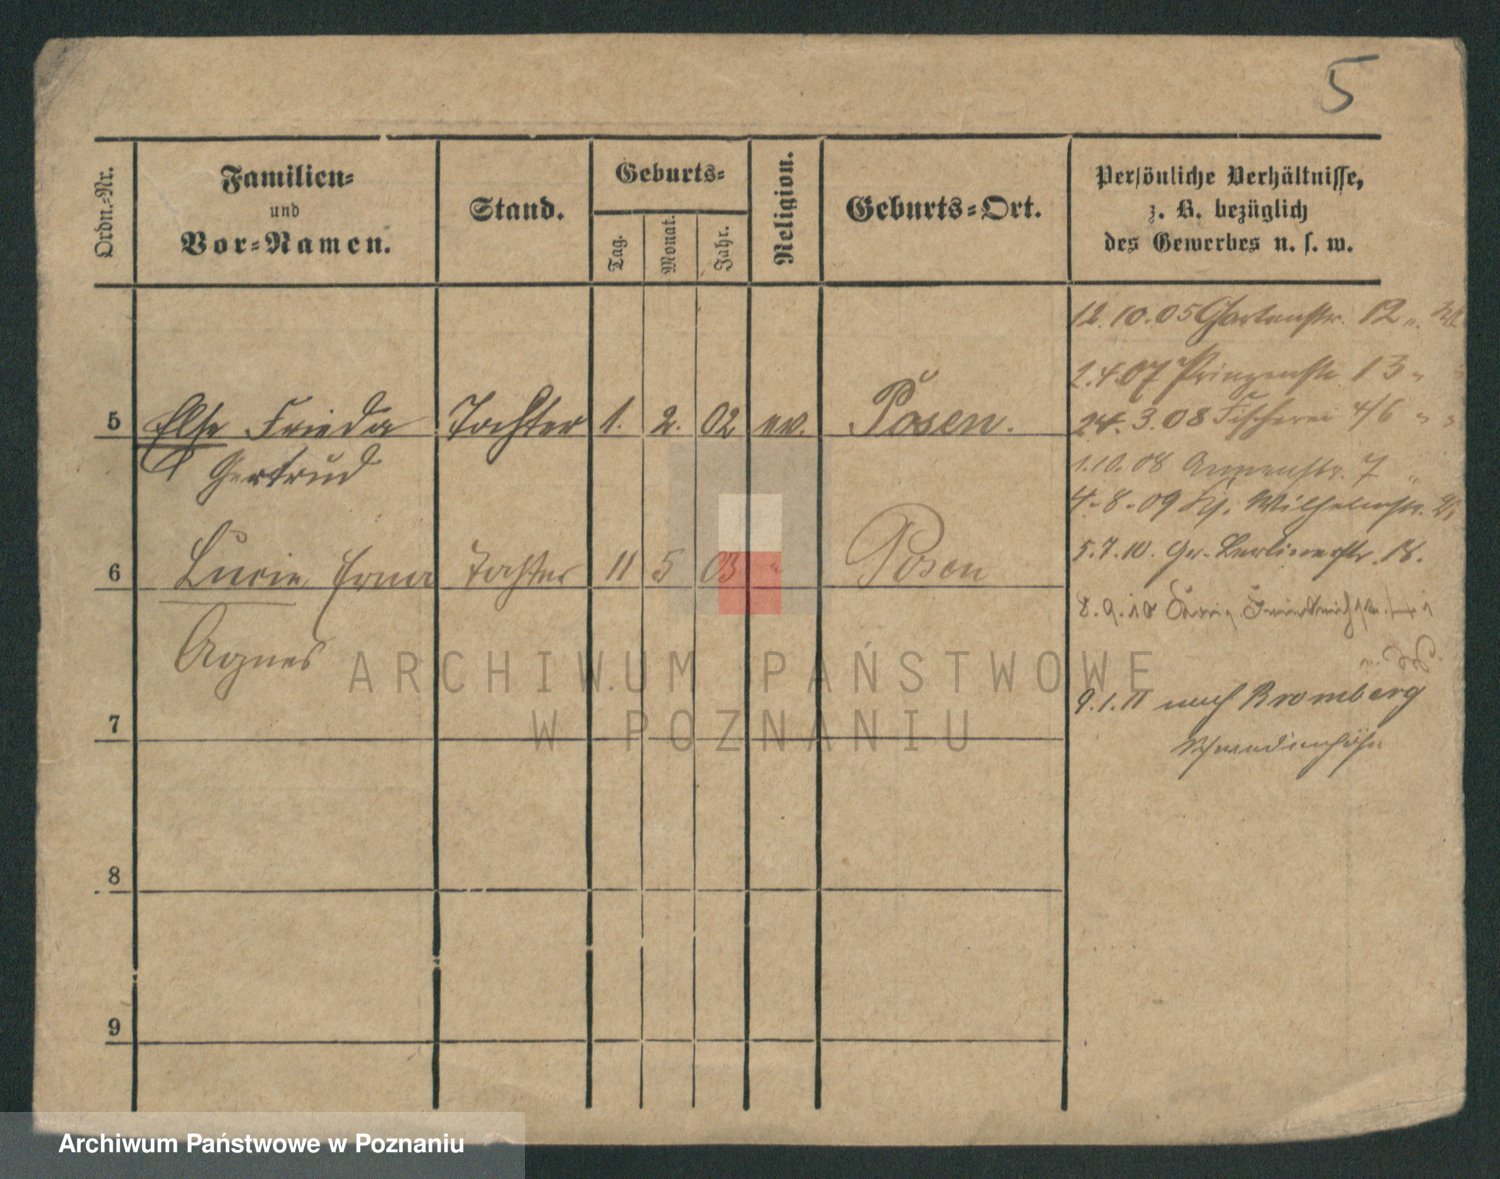 5
Ordn.-Nr.
Familien-
und
Vor-Namen.
Stand.
Geburts-
Tag.
Monat.
Jahr.
Religion.
Geburts-Ort.
Persönliche Verhältnisse,
z. B. bezüglich
des Gewerbes u. s. w.
12.10.05 Gartenstr. 12
2.4.07 Prinzenstr. 13 "
5 Else Frieda Tochter 1. 2. 02 ev. Posen.
24.3.08 Fischerei 4/6 " "
Gertrud
1.10.08 Annenstr. 7
4-8-09 Wilhelmstr.
6 Lucie Erna Tochter 11 5 03 " Posen
5.7.10. Gr. Berlinerstr. 18.
8.9.10
Agnes
ARCHIWUM PAŃSTWOWE
W POZNANIU
9.1.11 nach Bromberg
7
Schwedenhöhe
8
9
Archiwum Państwowe w Poznaniu